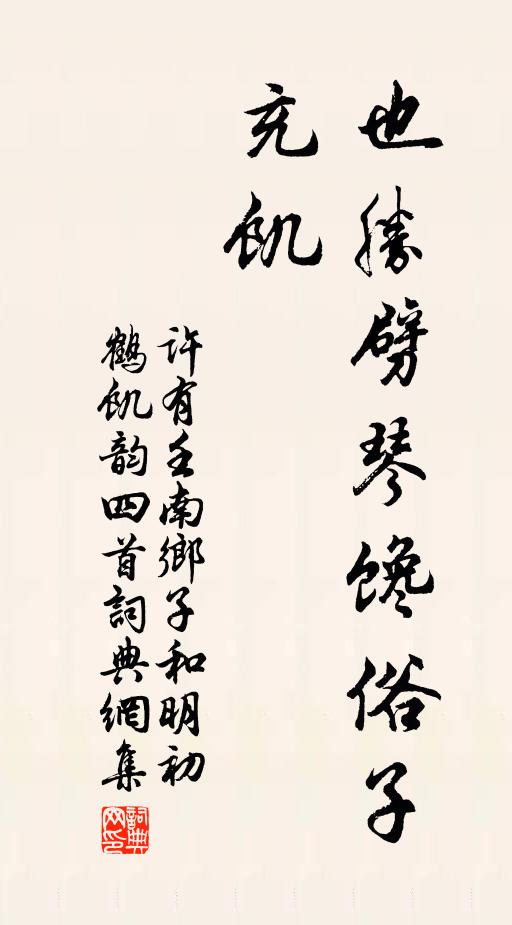 也勝劈琴馋俗子
充飢
许有壬南鄉子和明初
鶴飢韵四首詞典網集
詞典网印